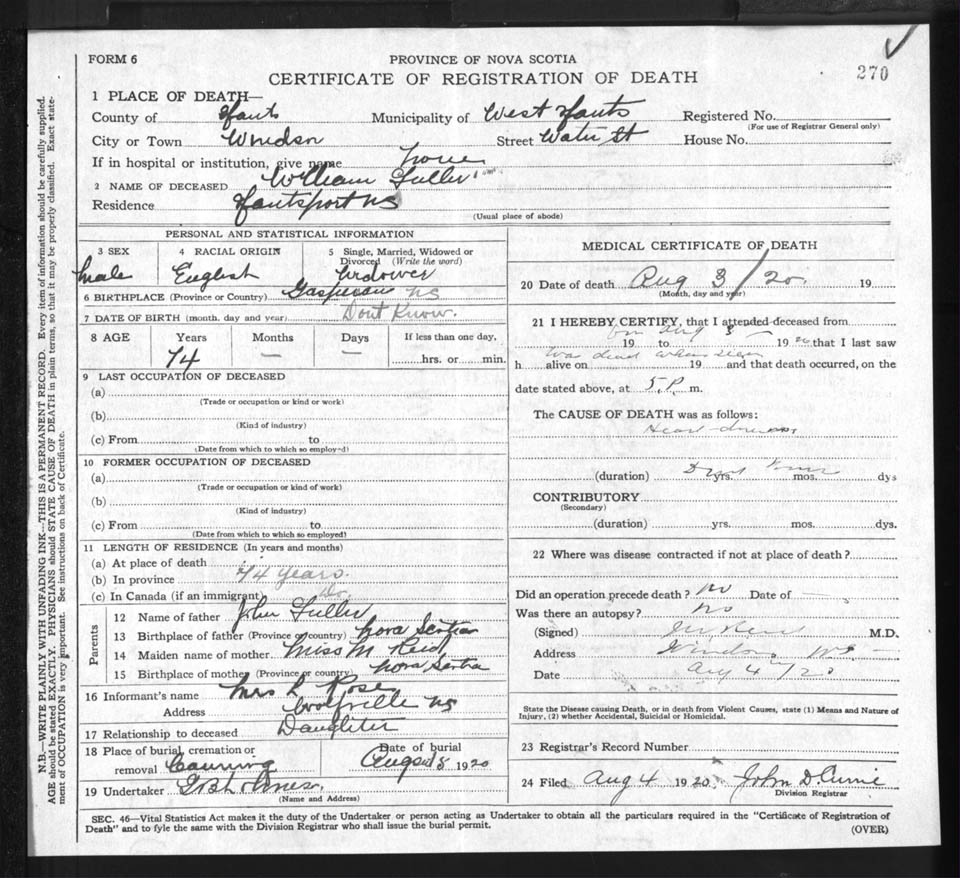 FORM 6
PROVINCE OF NOVA SCOTIA
270
CERTIFICATE OF REGISTRATION OF DEATH
1 PLACE OF DEATH—
County of Hants Municipality of West Hants Registered No.
(For use of Registrar General only)
City or Town Windsor Street Water St House No.
If in hospital or institution, give name none
2 NAME OF DECEASED William Fuller
Residence Hantsport NS
(Usual place of abode)
PERSONAL AND STATISTICAL INFORMATION
3 SEX
Male
4 RACIAL ORIGIN
English
5 Single, Married, Widowed or Divorced (Write the word)
Widower
6 BIRTHPLACE (Province or Country) Gaspereau NS
7 DATE OF BIRTH (month, day and year) Dont Know.
8 AGE Years Months Days If less than one day,
74 — — hrs. or min.
9 LAST OCCUPATION OF DECEASED
(a)
(Trade or occupation or kind or work)
(b)
(Kind of industry)
(c) From to
(Date from which to which so employed)
10 FORMER OCCUPATION OF DECEASED
(a)
(Trade or occupation or kind of work)
(b)
(Kind of industry)
(c) From to
(Date from which to which so employed)
11 LENGTH OF RESIDENCE (In years and months)
(a) At place of death
(b) In province 74 years.
(c) In Canada (if an immigrant) Do.
Parents
12 Name of father John Fuller
13 Birthplace of father (Province or country) Nova Scotia
14 Maiden name of mother Miss M Reid
15 Birthplace of mother (Province or country) Nova Scotia
16 Informant's name Mrs L Rose
Address Wolfville NS
17 Relationship to deceased Daughter
18 Place of burial, cremation or removal Canning
Date of burial
August 1920
19 Undertaker
(Name and Address)
MEDICAL CERTIFICATE OF DEATH
20 Date of death Aug 3/20. 19
(Month, day and year)
21 I HEREBY CERTIFY, that I attended deceased from
on Aug 3
19 to 1920 that I last saw
was dead when seen
h alive on 19 and that death occurred, on the
date stated above, at 5 P. m.
The CAUSE OF DEATH was as follows:
Heart
(duration) Dont Know yrs. mos. dys
CONTRIBUTORY
(Secondary)
(duration) yrs. mos. dys.
22 Where was disease contracted if not at place of death?
Did an operation precede death? No Date of —
Was there an autopsy? No
(Signed) M.D.
Address Windsor NS
Date Aug 4th/20
State the Disease causing Death, or in death from Violent Causes, state (1) Means and Nature of
Injury, (2) whether Accidental, Suicidal or Homicidal.
23 Registrar's Record Number
24 Filed Aug 4 1920. John D. Currie
Division Registrar
SEC. 46—Vital Statistics Act makes it the duty of the Undertaker or person acting as Undertaker to obtain all the particulars required in the "Certificate of Registration of
Death" and to fyle the same with the Division Registrar who shall issue the burial permit.
(OVER)
N.B.—WRITE PLAINLY WITH UNFADING INK—THIS IS A PERMANENT RECORD. Every item of information should be carefully supplied.
AGE should be stated EXACTLY. PHYSICIANS should STATE CAUSE OF DEATH in plain terms, so that it may be properly classified. Exact state-
ment of OCCUPATION is very important. See instructions on back of Certificate.